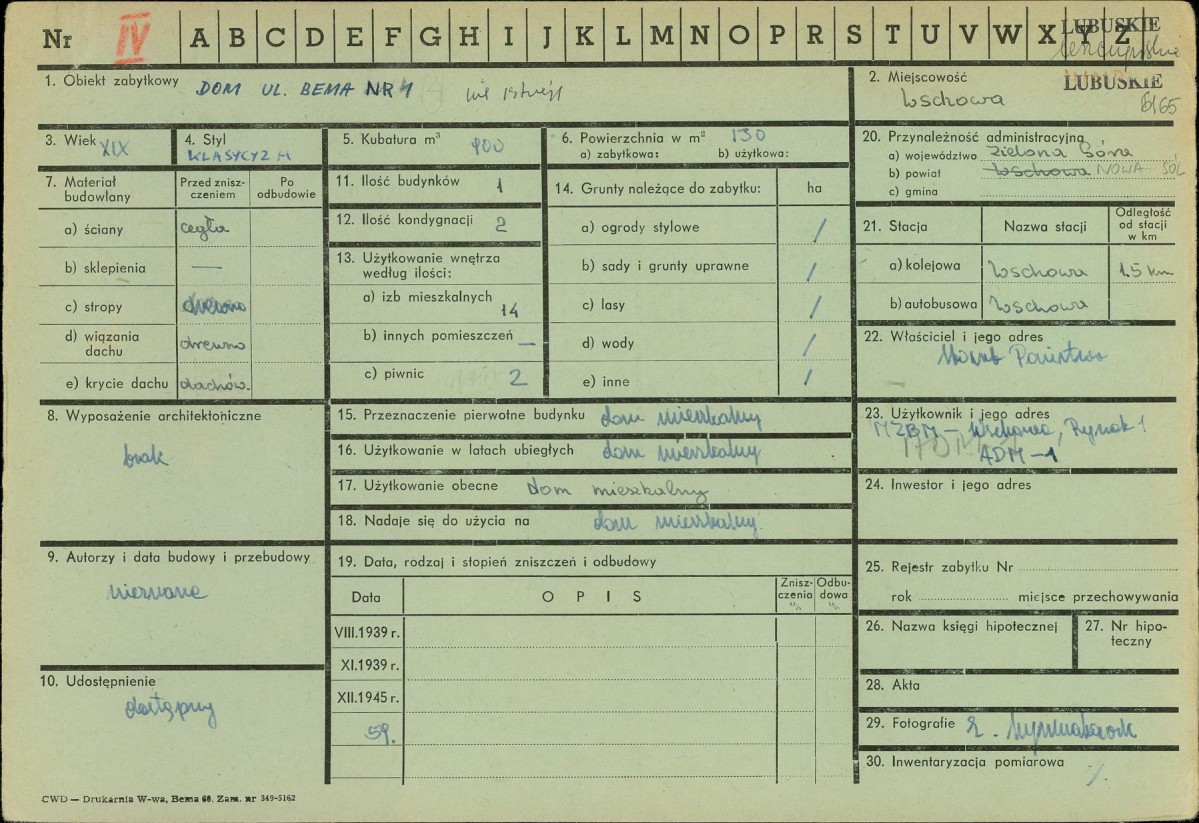 Nr IV A B C D E F G H I J K L M N O P R S T U V W X Y Z
LUBUSKIE
LUBUSKIE
1. Obiekt zabytkowy DOM UL. BEMA NR 4 nie istnieje
2. Miejscowość
Wschowa
3. Wiek XIX
4. Styl
KLASYCYZM
5. Kubatura m³ 900
6. Powierzchnia w m² 130
a) zabytkowa: b) użytkowa:
20. Przynależność administracyjna
a) województwo Zielona Góra
b) powiat Wschowa NOWA SÓL
c) gmina
7. Materiał budowlany
Przed zniszczeniem
Po odbudowie
a) ściany cegła
b) sklepienia —
c) stropy drewno
d) wiązania dachu drewno
e) krycie dachu dachów.
11. Ilość budynków 1
12. Ilość kondygnacji 2
13. Użytkowanie wnętrza
według ilości:
a) izb mieszkalnych 14
b) innych pomieszczeń —
c) piwnic 2
14. Grunty należące do zabytku: ha
a) ogrody stylowe /
b) sady i grunty uprawne /
c) lasy /
d) wody /
e) inne /
21. Stacja Nazwa stacji Odległość od stacji w km
a) kolejowa Wschowa 1.5 km
b) autobusowa Wschowa
22. Właściciel i jego adres
Skarb Państwa
8. Wyposażenie architektoniczne
brak
15. Przeznaczenie pierwotne budynku dom mieszkalny
16. Użytkowanie w latach ubiegłych dom mieszkalny
17. Użytkowanie obecne dom mieszkalny
18. Nadaje się do użycia na dom mieszkalny.
23. Użytkownik i jego adres
MZBM — Wschowa, Rynek 1
ADM-1
24. Inwestor i jego adres
9. Autorzy i data budowy i przebudowy
nieznane
19. Data, rodzaj i stopień zniszczeń i odbudowy
Data OPIS Zniszczenia % Odbudowa %
VIII.1939 r.
XI.1939 r.
XII.1945 r.
59.
25. Rejestr zabytku Nr
rok miejsce przechowywania
26. Nazwa księgi hipotecznej
27. Nr hipoteczny
10. Udostępnienie
dostępny
28. Akta
29. Fotografie
30. Inwentaryzacja pomiarowa
CWD — Drukarnia W-wa, Bema 60. Zam. nr 349-5162